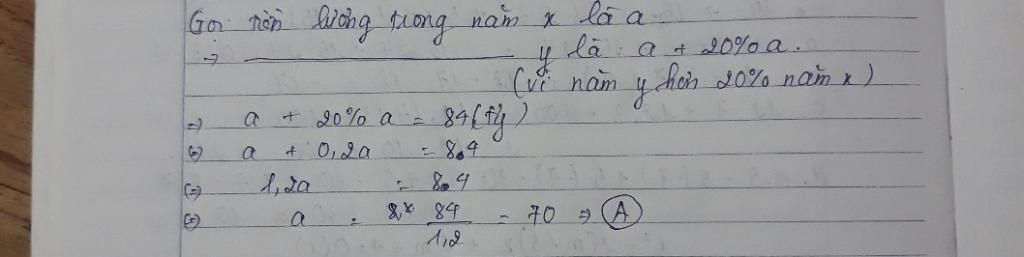 Gọi tiền lương trong năm x là a.
→ ——————— y là: a + 20% a.
(vì năm y hơn 20% năm x)
=> a + 20% a = 84 (tỷ)
<=> a + 0,2a = 84
<=> 1,2a = 84
<=> a = 84/1,2 = 70 => A